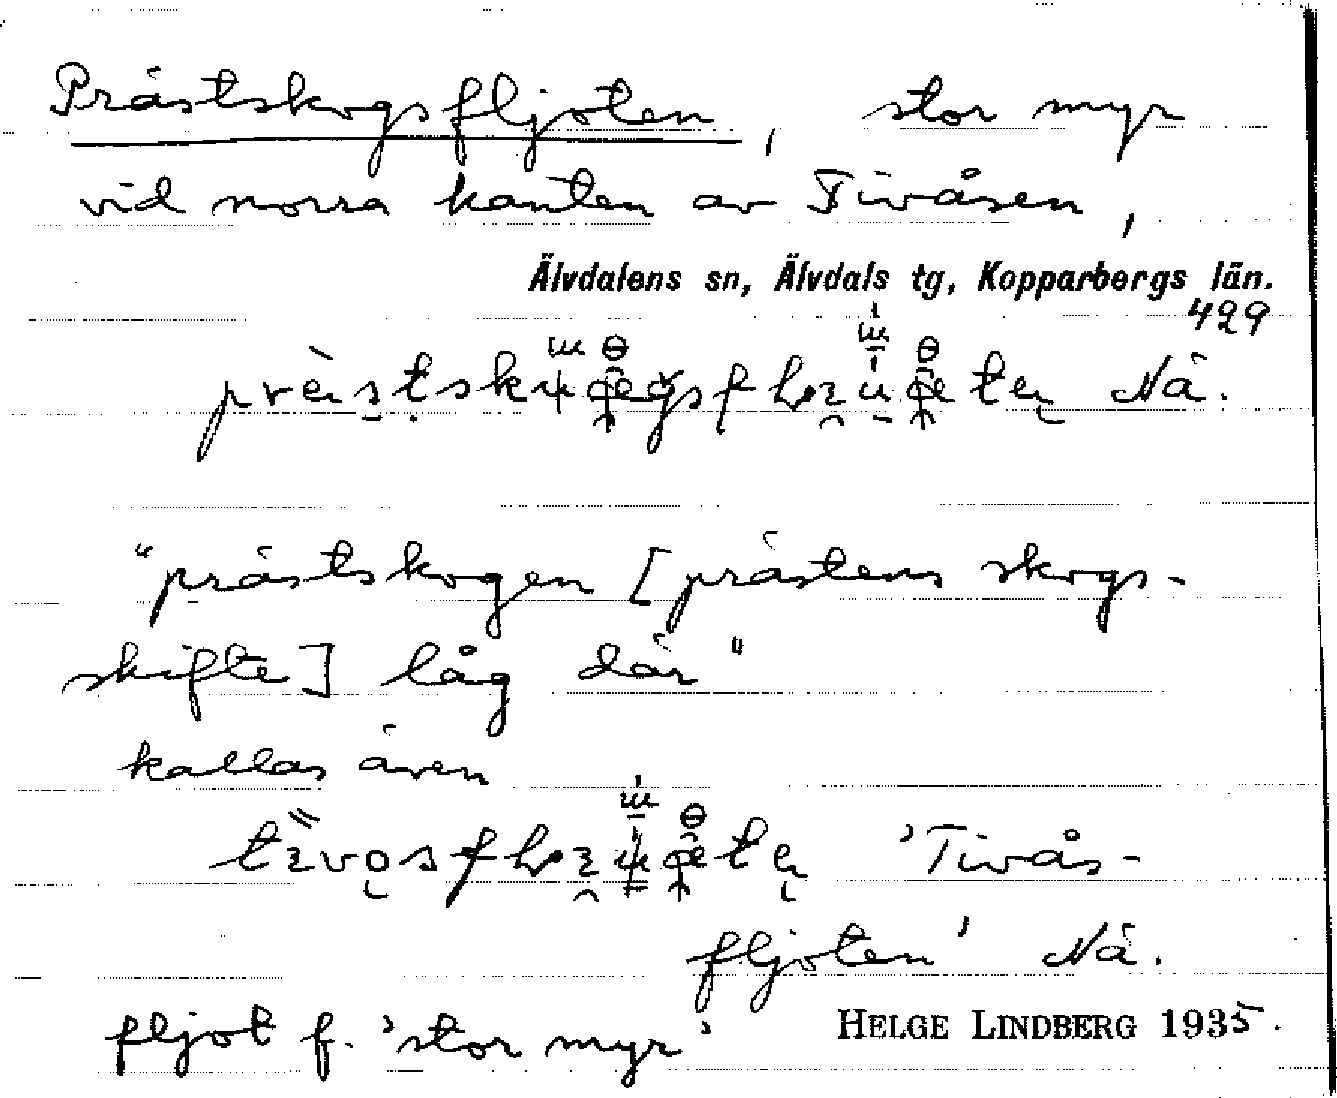 Prästskogsfljoten, stor myr
vid norra kanten av Tivåsen,
Älvdalens sn, Älvdals tg, Kopparbergs län.
429
Nä.
"prästskogen [prästens skogs-
skifte] låg där"
kallas även
'Tivås-
fljoten' Nä.
fljot f. 'stor myr'
HELGE LINDBERG 1935.